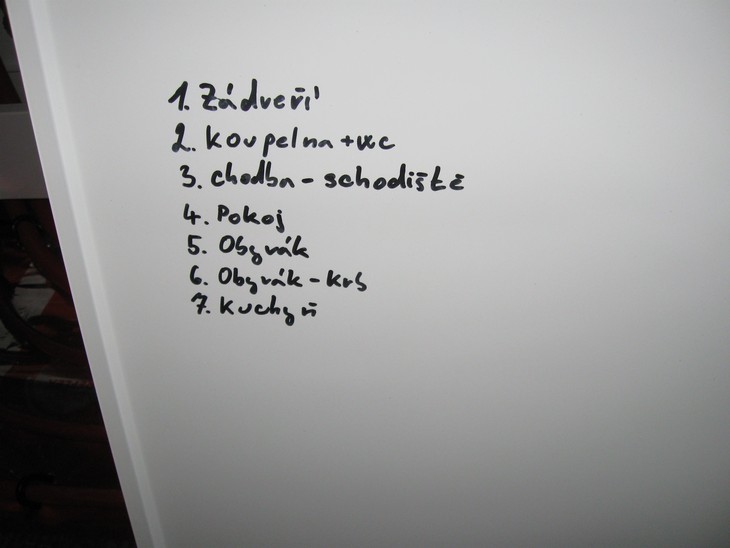 1. Zádveří
2. Koupelna + wc
3. chodba - schodiště
4. Pokoj
5. Obyvák
6. Obyvák - krb
7. Kuchyň